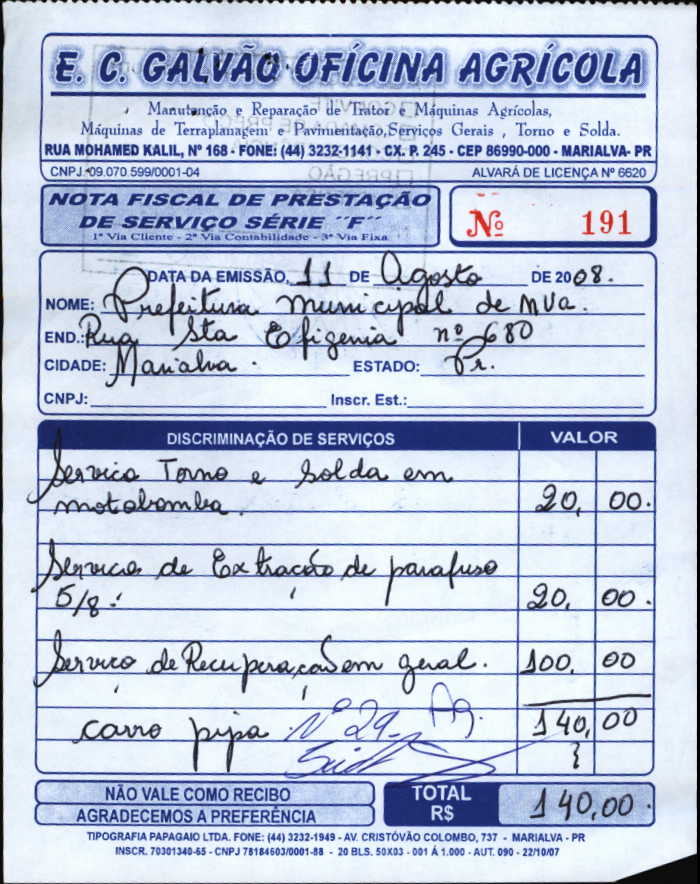 E. C. GALVÃO OFÍCINA AGRÍCOLA
Manutenção e Reparação de Trator e Máquinas Agrícolas,
Máquinas de Terraplanagem e Pavimentação,Serviços Gerais , Torno e Solda.
RUA MOHAMED KALIL, Nº 168 - FONE: (44) 3232-1141 - CX. P. 245 - CEP 86990-000 - MARIALVA- PR
CNPJ. 09.070 599/0001-04 ALVARÁ DE LICENÇA Nº 6620
NOTA FISCAL DE PRESTAÇÃO
DE SERVIÇO SÉRIE ´´F´´
1ª Via Cliente - 2ª Via Contabilidade - 3ª Via Fixa
Nº 191
DATA DA EMISSÃO, 11 DE Agosto DE 2008.
NOME: Prefeitura municipal de mva.
END.: Rua Sta Efigenia nº 680
CIDADE: Marialva. ESTADO: Pr.
CNPJ: Inscr. Est.:
DISCRIMINAÇÃO DE SERVIÇOS VALOR
Serviço Torno e solda em
motobomba. 20, 00.
Serviço de Extração de parafuso
5/8. 20, 00.
Serviço de Recuperação em geral. 100, 00
carro pipa Nº 29- Ag. 140,00
NÃO VALE COMO RECIBO
AGRADECEMOS A PREFERÊNCIA
TOTAL
R$ 140,00.
TIPOGRAFIA PAPAGAIO LTDA. FONE: (44) 3232-1949 - AV. CRISTÓVÃO COLOMBO, 737 - MARIALVA - PR
INSCR. 70301340-65 - CNPJ 78184603/0001-88 - 20 BLS. 50X03 - 001 Á 1.000 - AUT. 090 - 22/10/07